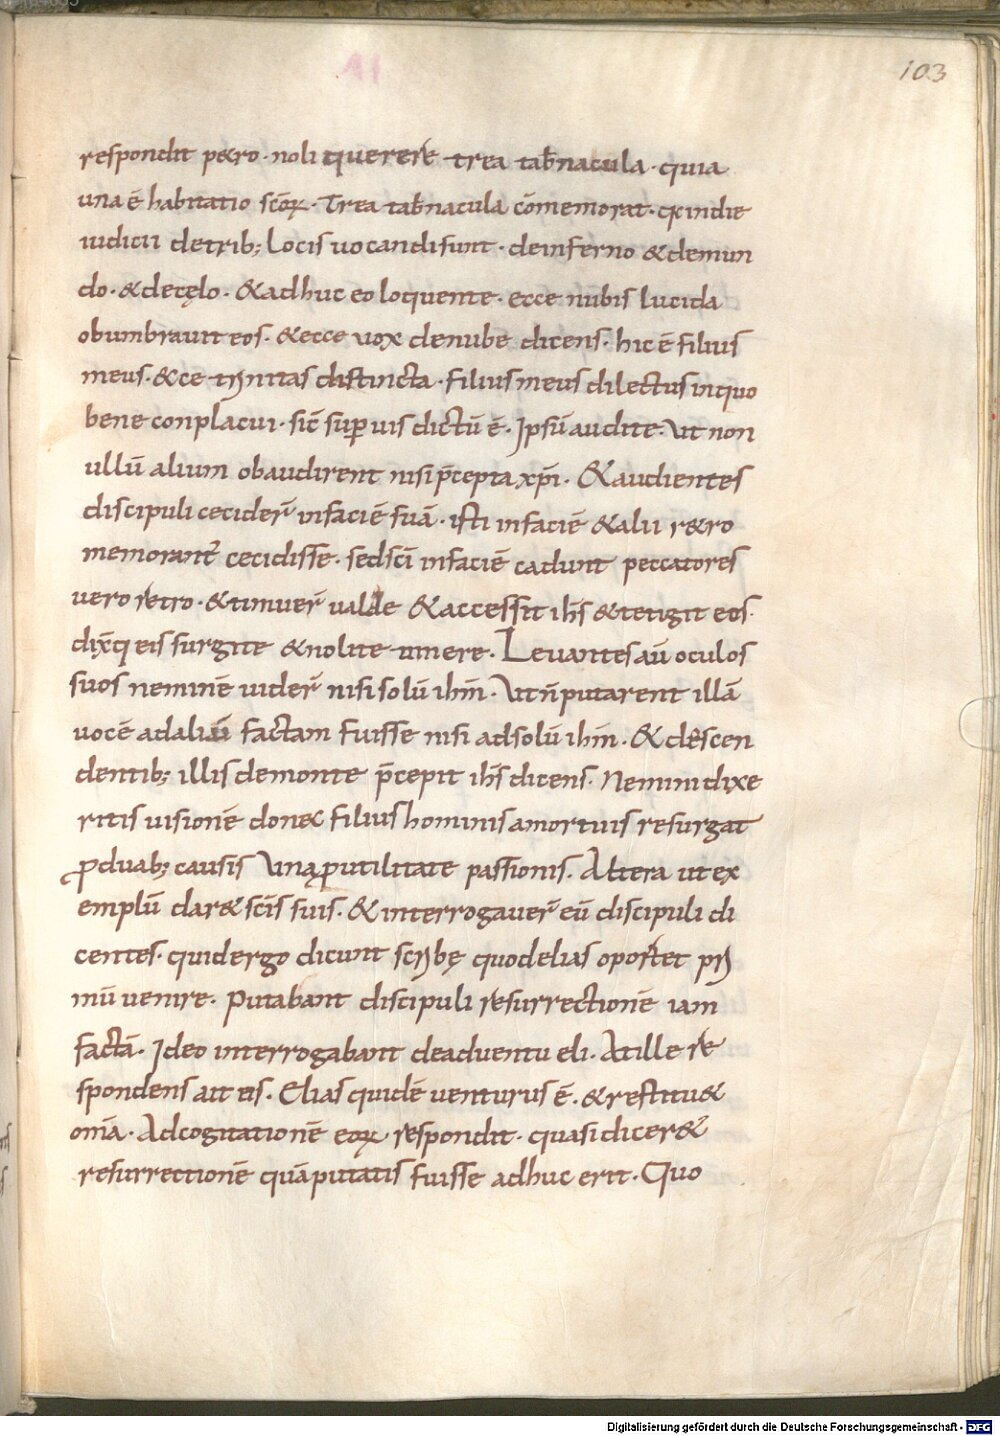 103
respondit p&ro · noli querere trea tab̄nacula · quia
una ē habitatio sc̄oꝝ · Trea tab̄nacula cōmemorat · q: indie
iudicii detrib; locis uocandi sunt · deinferno & demun
do · & decęlo · & adhuc eo loquente · ecce nubis lucida
obumbrauit eos · & ecce uox denube dicens · hic ē filius
meus · & ce trinitas distincta · filius meus dilectus inquo
bene conplacui · sic̄ sup̱ uis dictū ē · Ipsū audite · Ut non
ullū alium obaudirent nisi p̄cepta xp̄i · & audientes
discipuli cecider̄ infaciē suā · isti infaciē & alii r&ro
memorant̄ cecidisse · sed sc̄i infaciē cadunt peccatores
uero retro · & timuer̄ ualde & accessit ih̄s & tetigit eos ·
dix̄q; eis surgite & nolite timere · Leuantes aū oculos
suos neminē uider̄ nisi solū ih̄m · Ut n̄ putarent illā
uocē ad aliū factam fuisse nisi ad solū ih̄m · & descen
dentib; illis demonte p̄cepit ih̄s dicens · Nemini dixe
ritis uisionē donec filius hominis amortuis resurgat
ꝓ duab; causis Unaꝓ utilitate passionis · Altera ut ex
emplū dar& sc̄is suis · & interrogauer̄ eū discipuli di
centes · quid ergo dicunt scribę quod elias oportet pri
mū uenire · Putabant discipuli resurrectionē iam
factā · Ideo interrogabant deaduentu eli · At ille re
spondens ait eis · Elias quidē uenturus ē · & restitu&
om̄ia · Ad cogitationē eoꝝ respondit · quasi dicer&
resurrectionē quā putatis fuisse adhuc erit · Quo
Digitalisierung gefördert durch die Deutsche Forschungsgemeinschaft - DFG